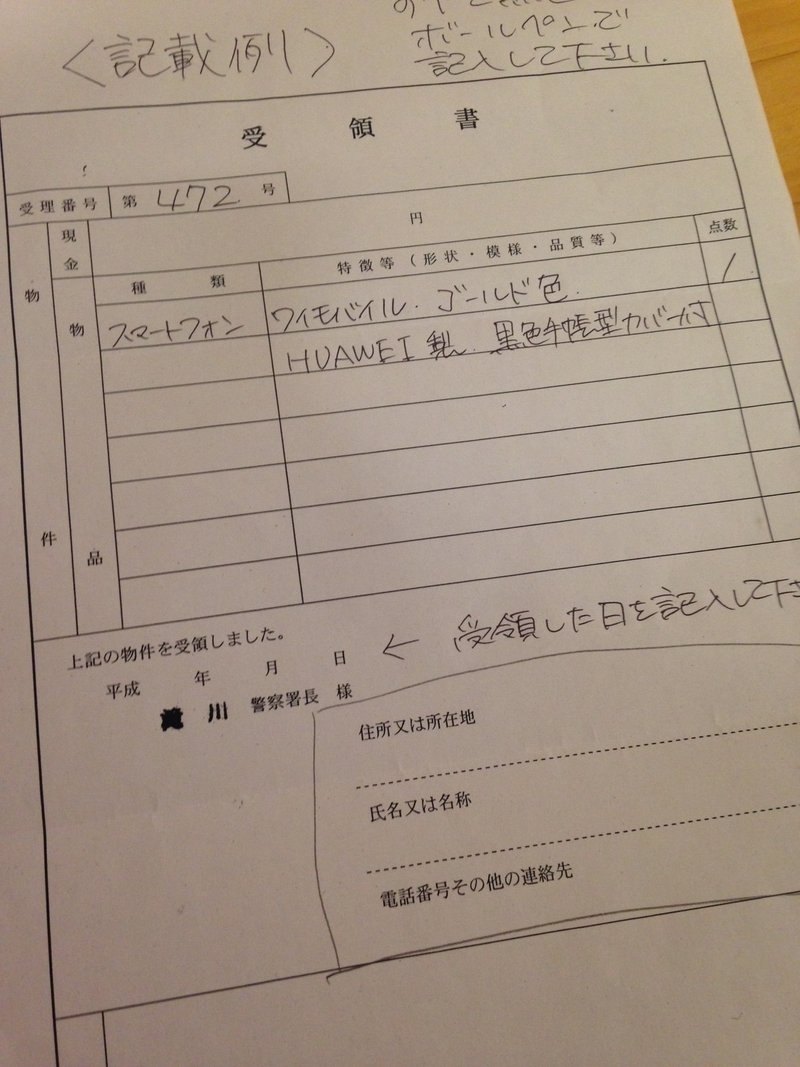 〈記載例〉
ボールペンで
記入して下さい.
受領書
受理番号 第 472 号
物件
現金
円
物品
種類 特徴等(形状・模様・品質等) 点数
スマートフォン ワイモバイル. ゴールド色. 1
HUAWEI製. 黒色手帳型カバー付
上記の物件を受領しました。
平成 年 月 日 ← 受領した日を記入して下さ
川 警察署長 様
住所又は所在地
氏名又は名称
電話番号その他の連絡先